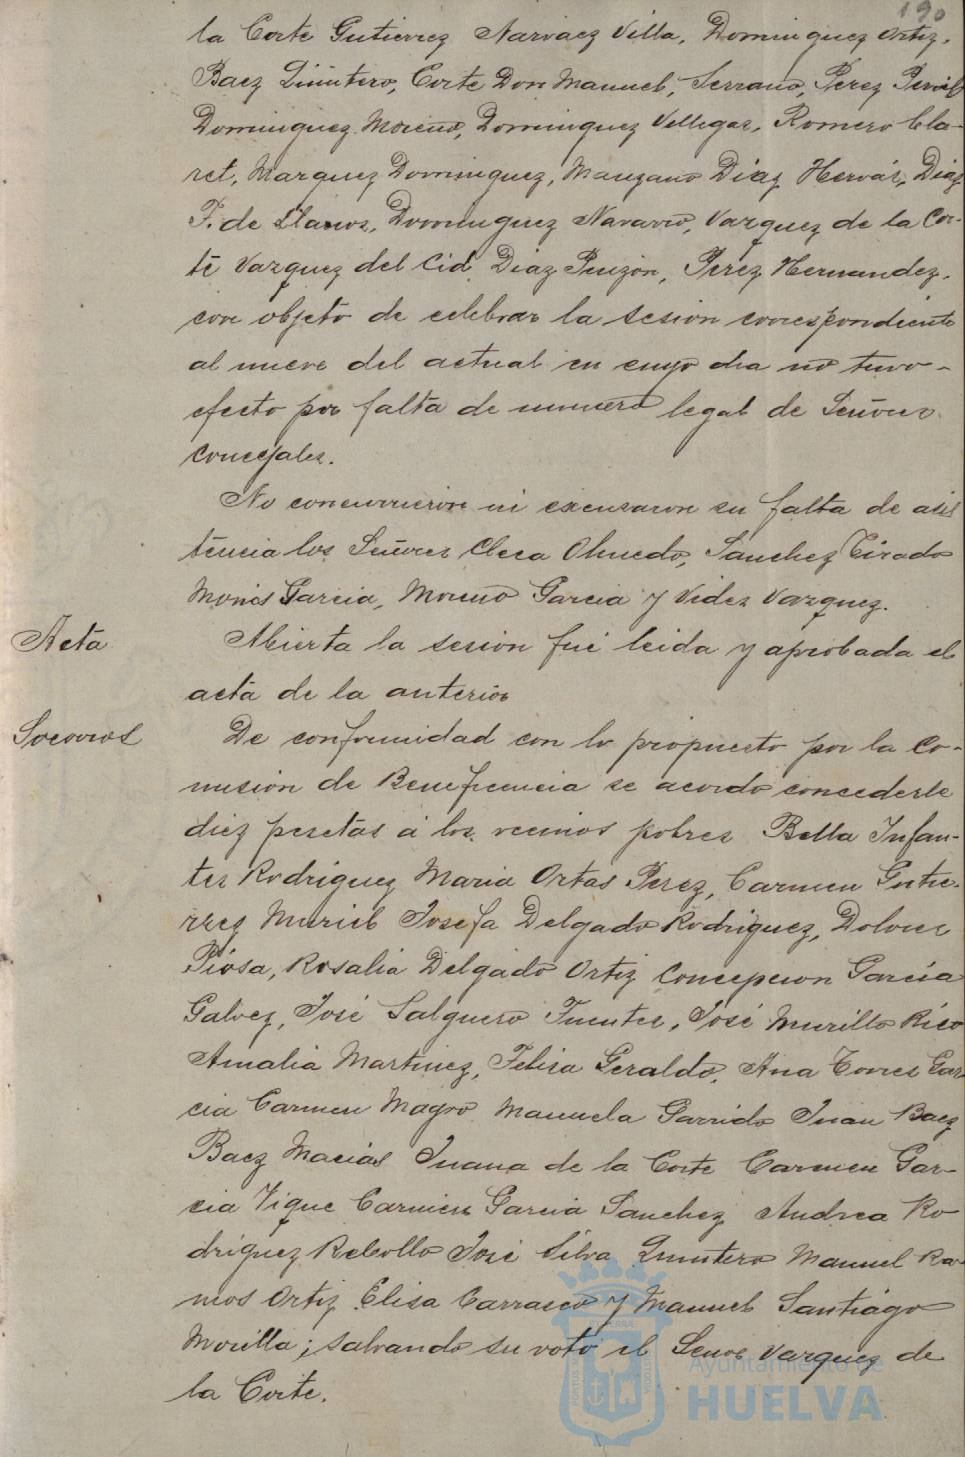 190
la Corte Gutierrez Narvaez Villa, Dominguez Ortiz,
Baez Quintero, Corte Don Manuel, Serrano, Perez
Dominguez Moreno, Dominguez Villegas, Romero Cla-
ret, Marquez Dominguez, Manzano Diaz Hervás, Diaz
F. de Llanos, Dominguez Navarro, Vazquez de la Cor-
te Vazquez del Cid, Diaz Pinzón, Perez Hernandez,
con objeto de celebrar la sesion correspondiente
al nueve del actual en cuyo dia no tuvo-
efecto por falta de numero legal de Señores
concejales.
No concurrieron ni excusaron su falta de asis
tencia los Señores Checa Olmedo, Sanchez Tirado
Monis Garcia, Moreno Garcia y Vides Vazquez.
Acta Abierta la sesion fué leida y aprobada el
acta de la anterior
Socorros De conformidad con lo propuesto por la Co-
mision de Beneficencia se acordo concederle
diez pesetas á los vecinos pobres Bella Infan-
tes Rodriguez Maria Ortas Perez, Carmen Gutie-
rrez Muriel Josefa Delgado Rodriguez, Dolores
Piosa, Rosalia Delgado Ortiz Concepcion Garcia
Galvez, José Salguero Fuentes, José Murillo Rico
Amalia Martinez, Felisa Geraldo, Ana Torres Gar
cia Carmen Magro Manuela Garrido Juan Baez
Baez Macias Juana de la Corte Carmen Gar-
cia Vique Carmen Garcia Sanchez Andrea Ro
driguez Rebollo José Silva Quintero Manuel Ra-
mos Ortiz Elisa Carrasco y Manuel Santiago
Morilla; salvando su voto el Señor Vazquez de
la Corte.
Ayuntamiento de
HUELVA